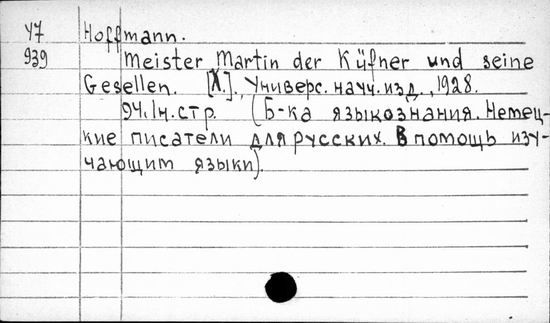 У7 Hoffmann.
939 Meister Martin der Küfner und seine
Gesellen. [Х.], Универс. научн. изд., 1928.
94. Iн. стр. (Б-ка языкознания. Немец-
кие писатели для русских. В помощь изу-
чающим языки).